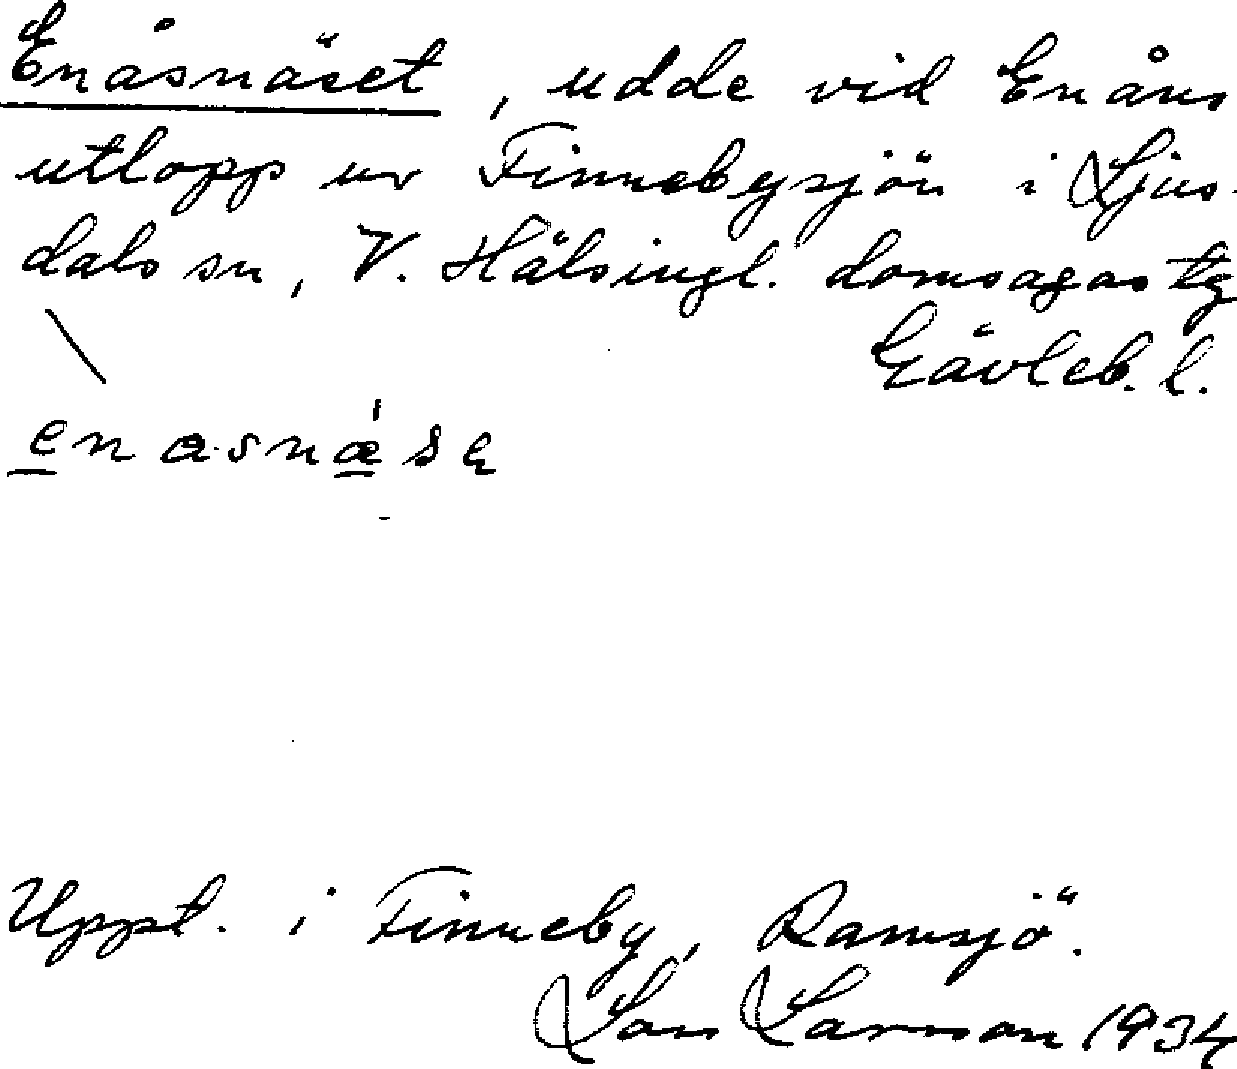 Enåsnäset, udde vid Enåns
utlopp ur Finnebysjön i Ljus-
dals sn, V. Hälsingl. domsagas tg
Gävleb. l.
enasnǽsę
Uppt. i Finneby, Ramsjö.
Lars Larsson 1934